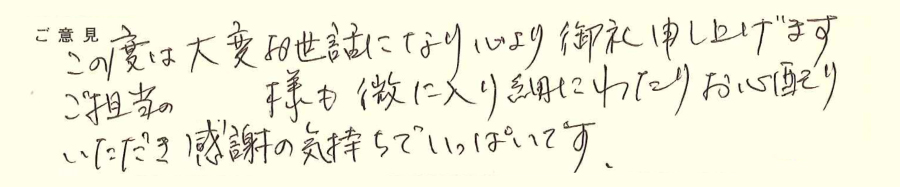 ご意見
この度は大変お世話になり心より御礼申し上げます
ご担当の 様も微に入り細にわたりお心配り
いただき感謝の気持ちでいっぱいです、